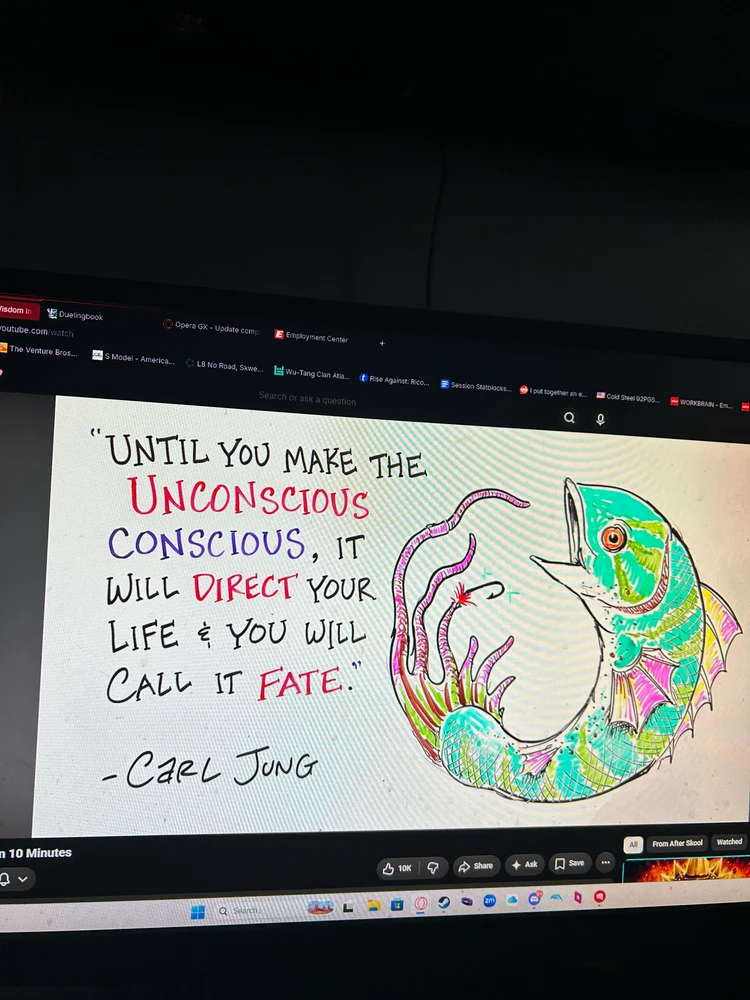 Wisdom in
Duelingbook
Opera GX - Update comp
Employment Center
+
youtube.com/watch
The Venture Bros...
S Model - America...
L8 No Road, Skwe...
Wu-Tang Clan Atla...
Rise Against: Rico...
Session Statblocks...
I put together an e...
Cold Steel 92PGS...
WORKBRAIN - Em...
Search or ask a question
"UNTIL YOU MAKE THE
UNCONSCIOUS
CONSCIOUS, IT
WILL DIRECT YOUR
LIFE & YOU WILL
CALL IT FATE."
- CARL JUNG
n 10 Minutes
10K
Share
Ask
Save
...
All
From After Skool
Watched
Search
zm